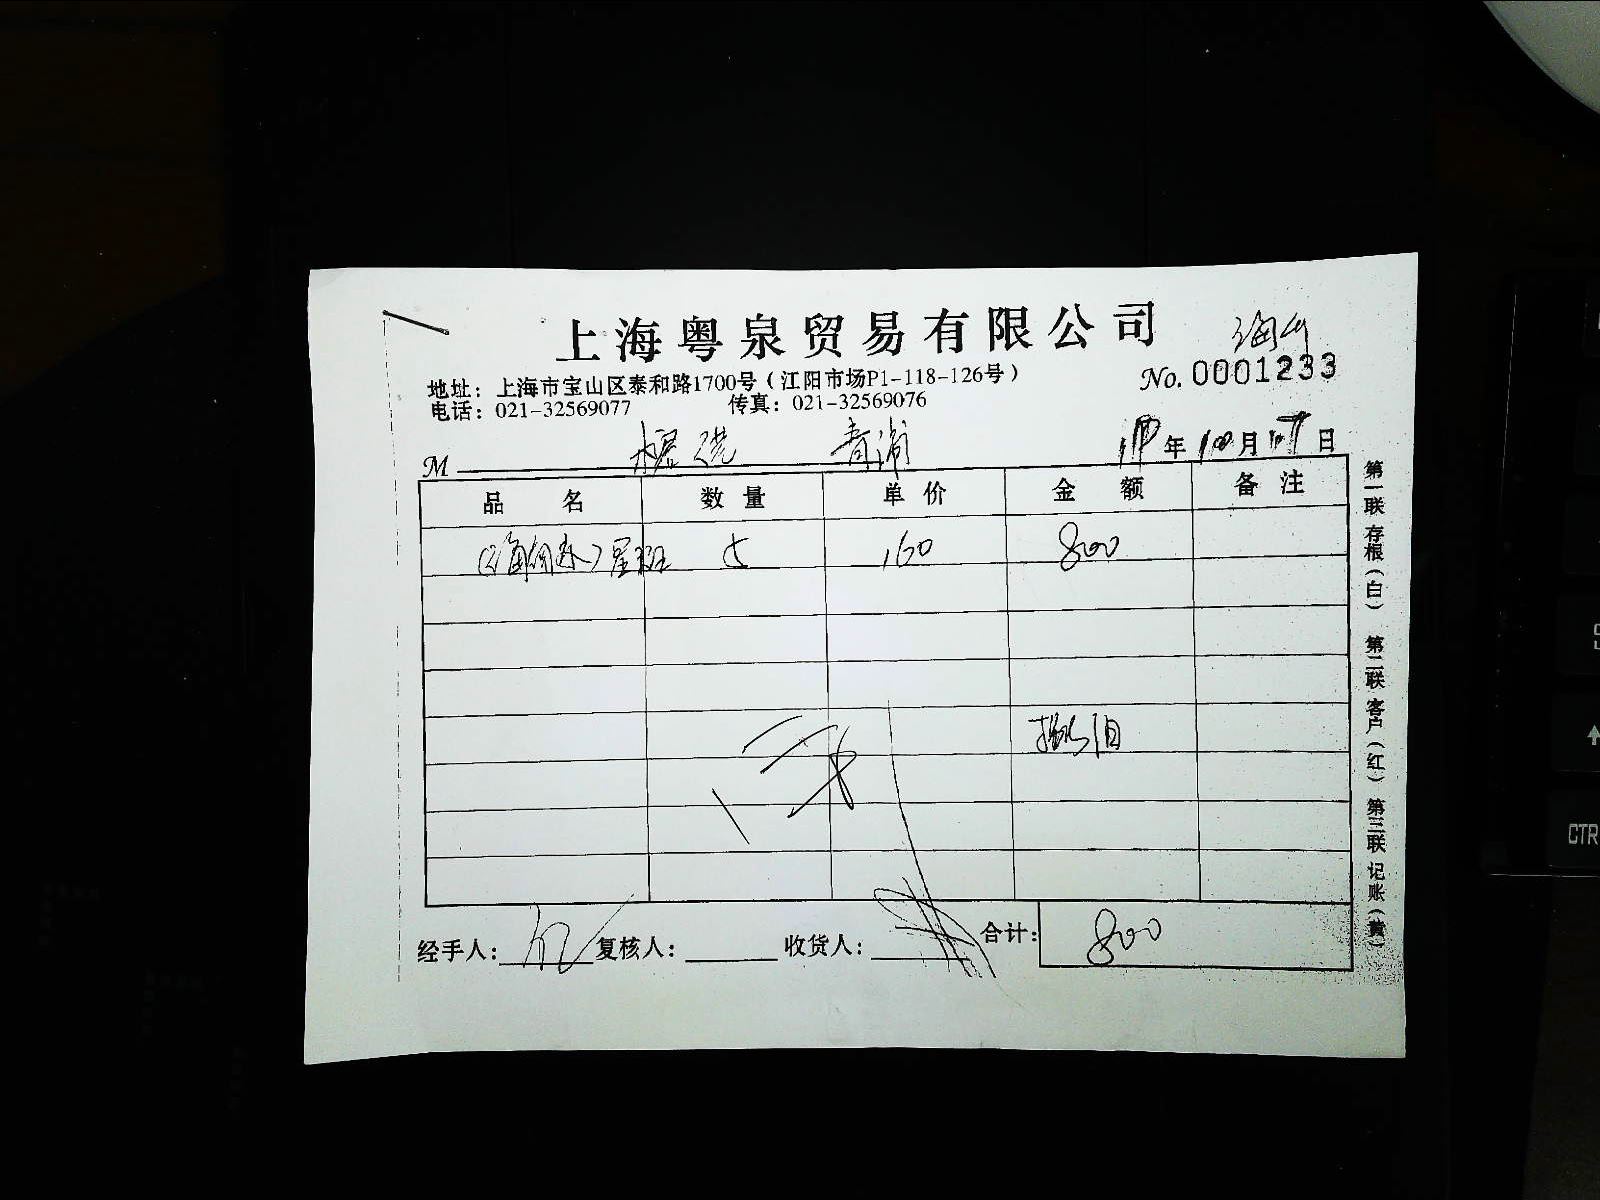 上海粤泉贸易有限公司
地址：上海市宝山区泰和路1700号（江阳市场P1-118-126号）
No. 0001233
电话：021-32569077 传真：021-32569076
M 青浦 年 月 日
品名 数量 单价 金额 备注
星斑 5 160 800
捌佰
经手人： 复核人： 收货人： 合计： 800
第一联 存根（白） 第二联 客户（红） 第三联 记账（黄）
CTR